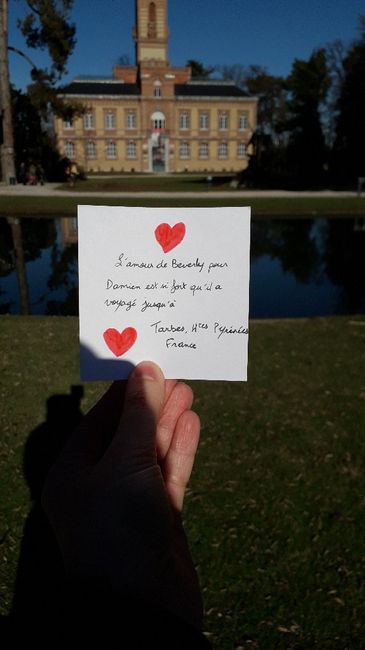 L'amour de Beverly pour
Damien est si fort qu'il a
voyagé jusqu'à
Tarbes, Htes Pyrénées
France